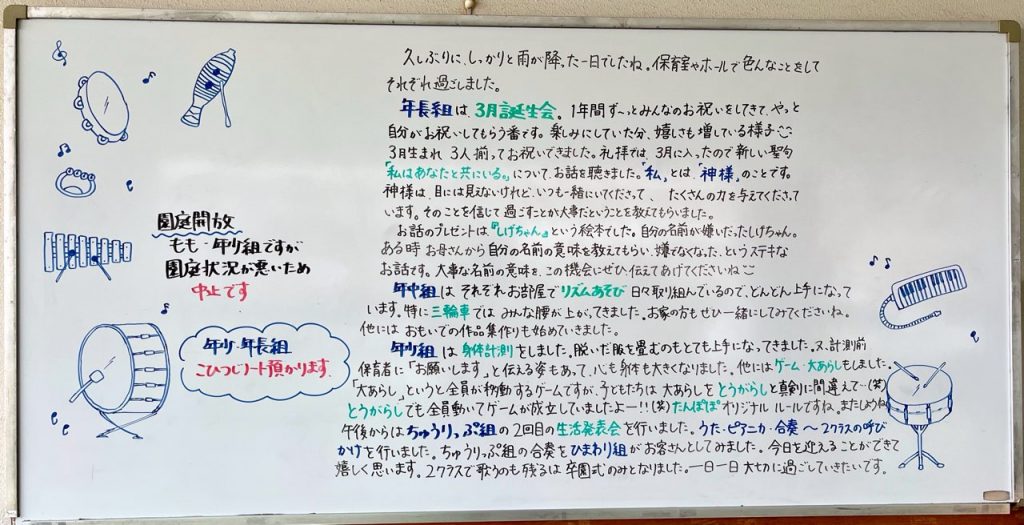 久しぶりに、しっかりと雨が降った一日でしたね。保育室やホールで色んなことをして
それぞれ過ごしました。
年長組は、3月誕生会。1年間ずーっとみんなのお祝いをしてきて、やっと
自分がお祝いしてもらう番です。楽しみにしていた分、嬉しさも増している様子
3月生まれ 3人揃ってお祝いできました。礼拝では、3月に入ったので新しい聖句
「私はあなたと共にいる。」について、お話を聴きました。「私」とは、「神様」のことです。
神様は、目には見えないけれど、いつも一緒にいてくださって、たくさんの力を与えてくださって
います。そのことを信じて過ごすことが大事だということを教えてもらいました。
お話のプレゼントは『しげちゃん』という絵本でした。自分の名前が嫌いだったしげちゃん。
ある時 お母さんから自分の名前の意味を教えてもらい、嫌でなくなった、というステキな
お話です。大事な名前の意味を、この機会にぜひ、伝えてあげてくださいね
年中組は それぞれお部屋でリズムあそび 日々取り組んでいるので、どんどん上手になって
います。特に三輪車ではみんな腰が上がってきました。お家の方もぜひ一緒にしてみてくださいね。
他には おもいでの作品集作りも始めていきました。
年少組 は 身体計測をしました。脱いだ服を畳むのもとても上手になってきました。又、計測前
保育者に「お願いします」と伝える姿もあって、心も身体も大きくなりました。他にはゲーム・大あらしもしました。
「大あらし」というと全員が移動するゲームですが、子どもたちは 大あらしを とうがらしと真剣に間違えて…(笑)
とうがらしでも全員動いてゲームが成立していましたよー!!(笑)たんぽぽオリジナル ルールですね。またしようね
午後からはちゅうりっぷ組の2回目の生活発表会を行いました。うた・ピアニカ・合奏〜2クラスの呼び
かけを行いました。ちゅうりっぷ組の合奏をひまわり組がお客さんとしてみました。今日を迎えることができて
嬉しく思います。2クラスで歌うのも残るは卒園式のみとなりました。一日一日大切に過ごしていきたいです。
園庭開放
もも・年少組ですが
園庭状況が悪いため
中止です
年少・年長組
こひつじノート預かります